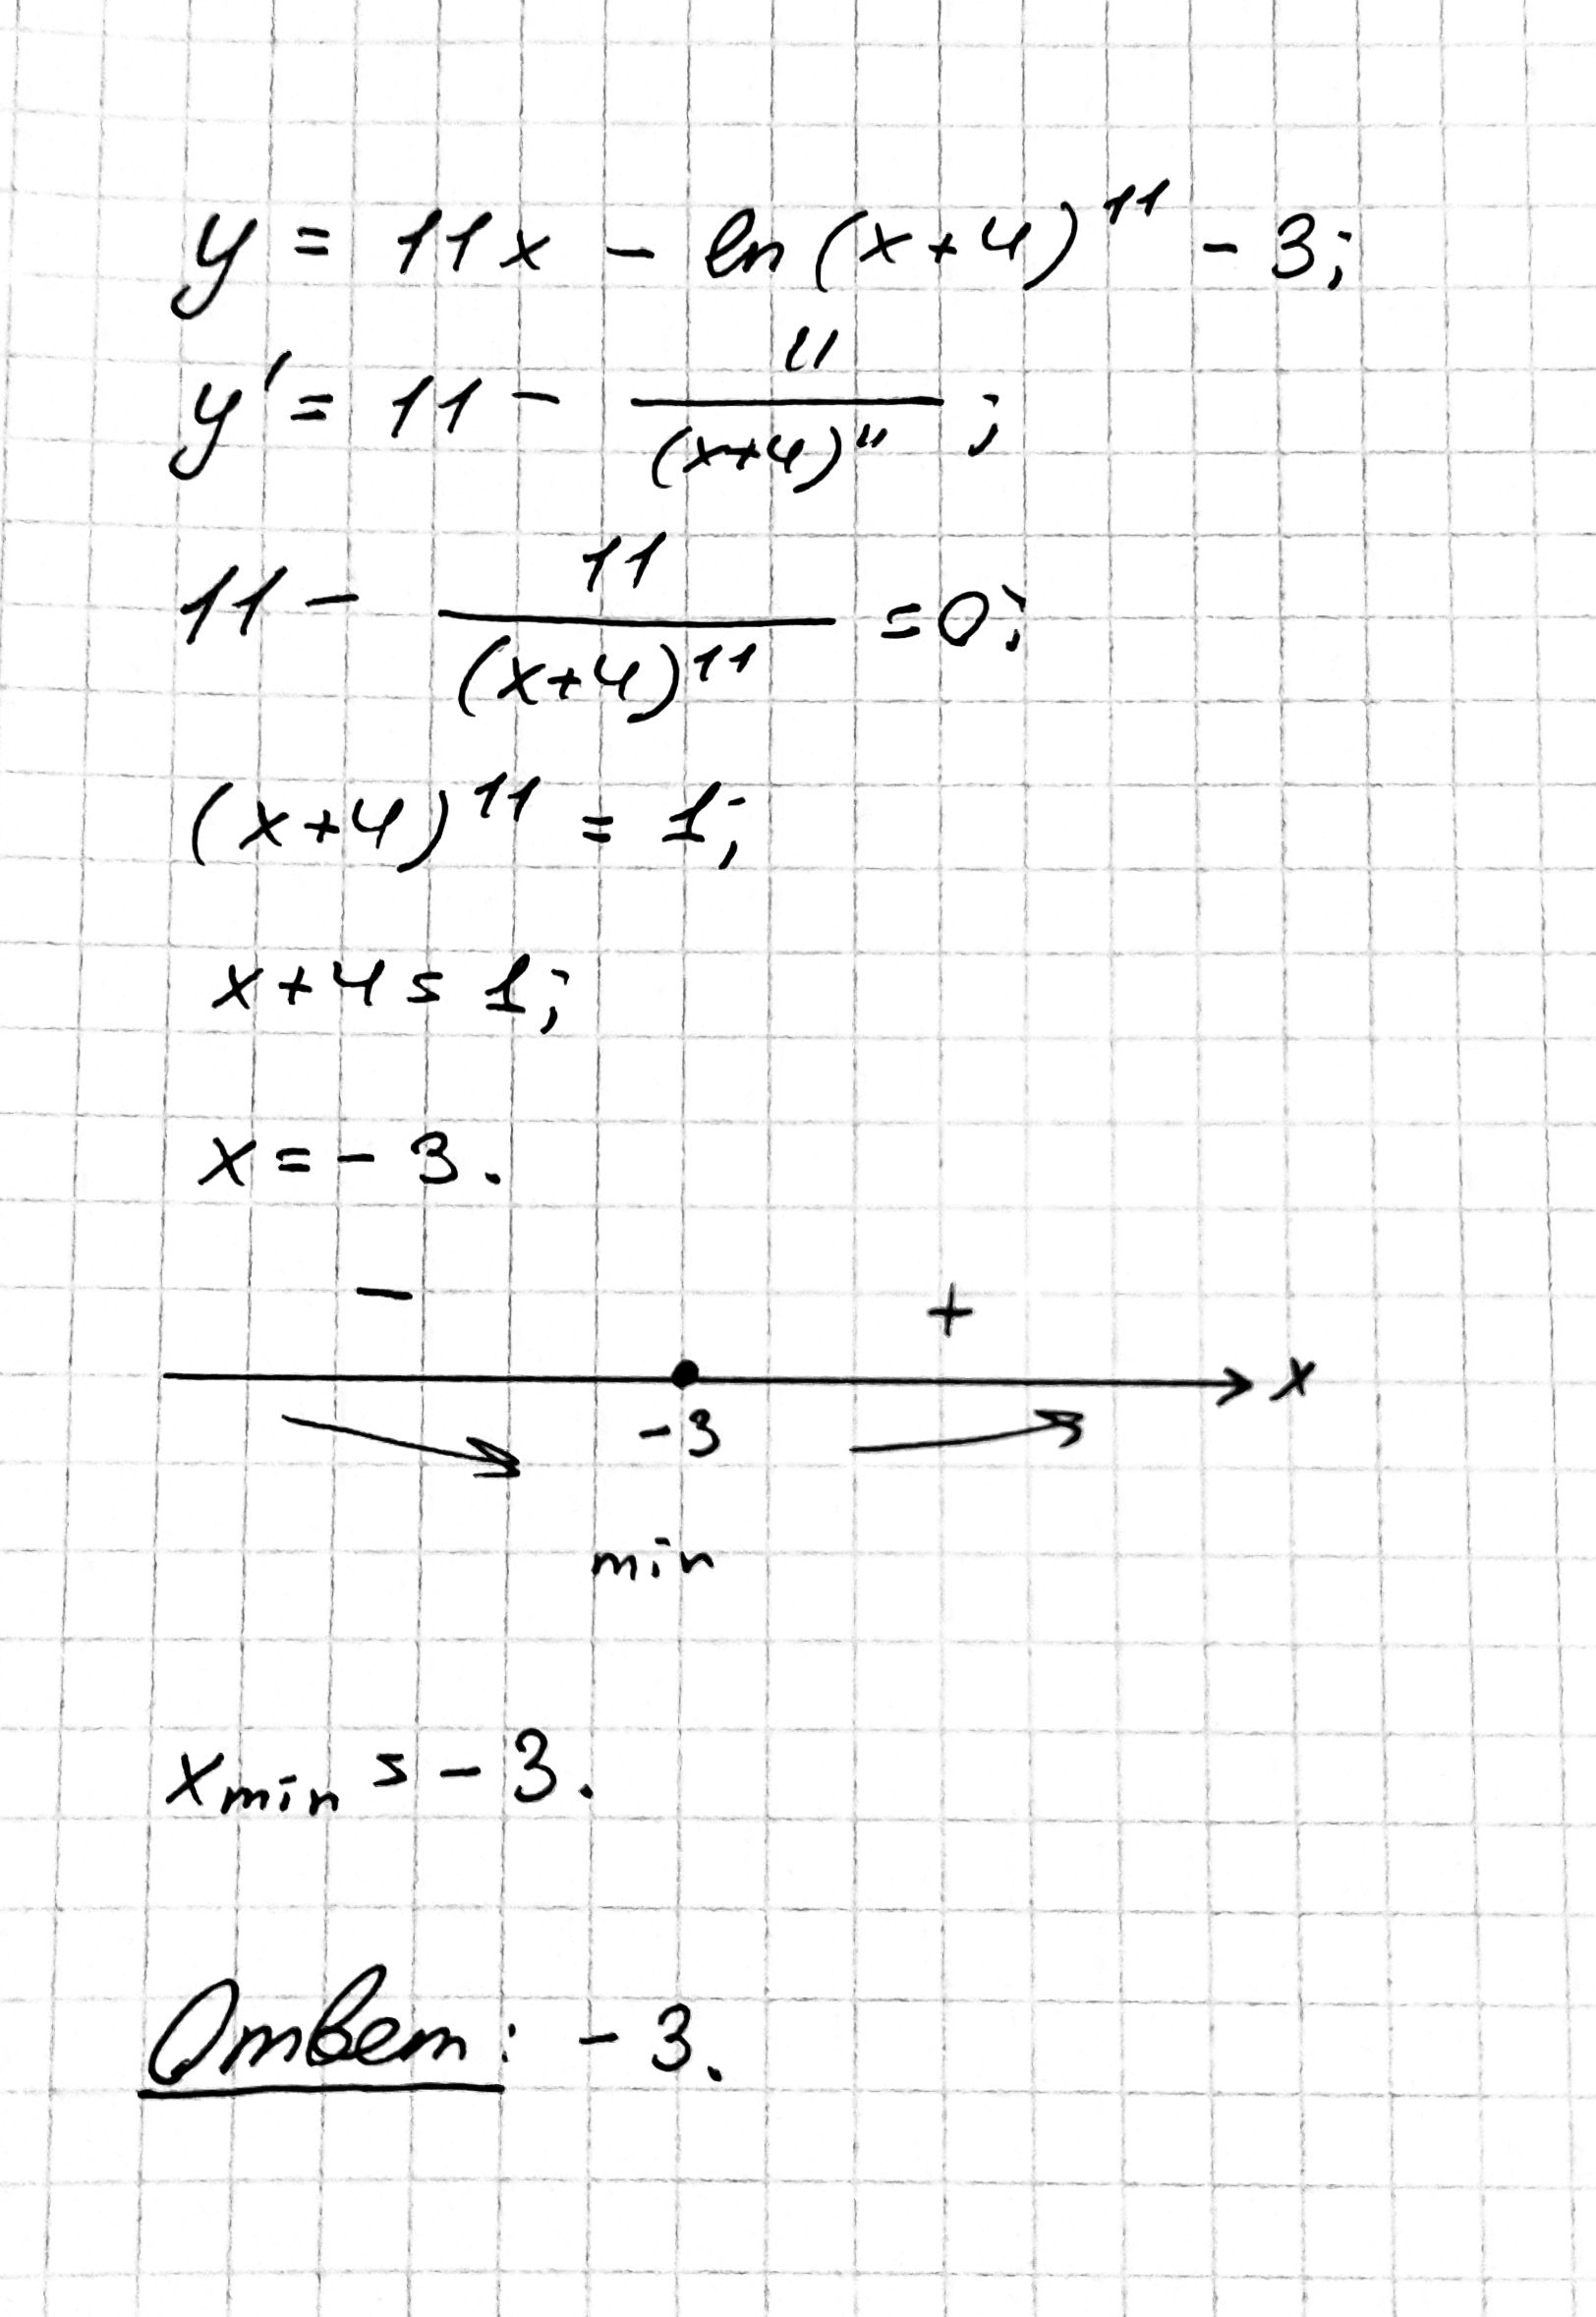 y = 11x - ln(x+4)^11 - 3;
y' = 11 - 11/(x+4)^11;
11 - 11/(x+4)^11 = 0;
(x+4)^11 = 1;
x+4 = 1;
x = -3.
- +
-3 x
min
x min = -3.
Ответ: -3.